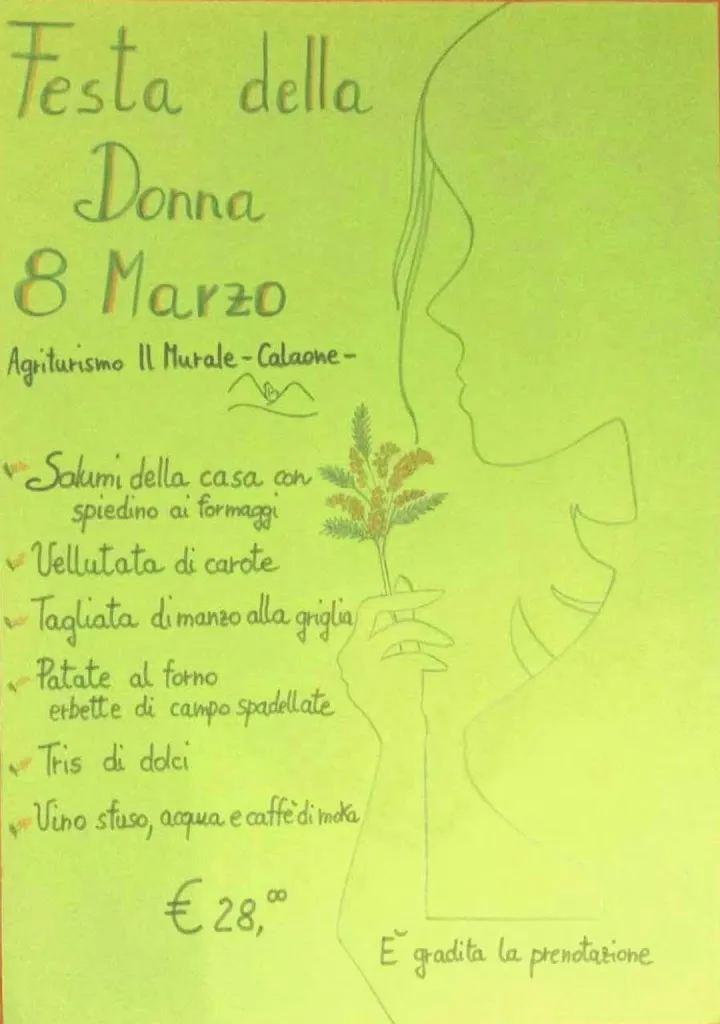 Festa della
Donna
8 Marzo
Agriturismo Il Murale - Calaone -
Salumi della casa con
spiedino ai formaggi
Vellutata di carote
Tagliata di manzo alla griglia
Patate al forno
erbette di campo spadellate
Tris di dolci
Vino sfuso, acqua e caffè di moka
€ 28,00
È gradita la prenotazione